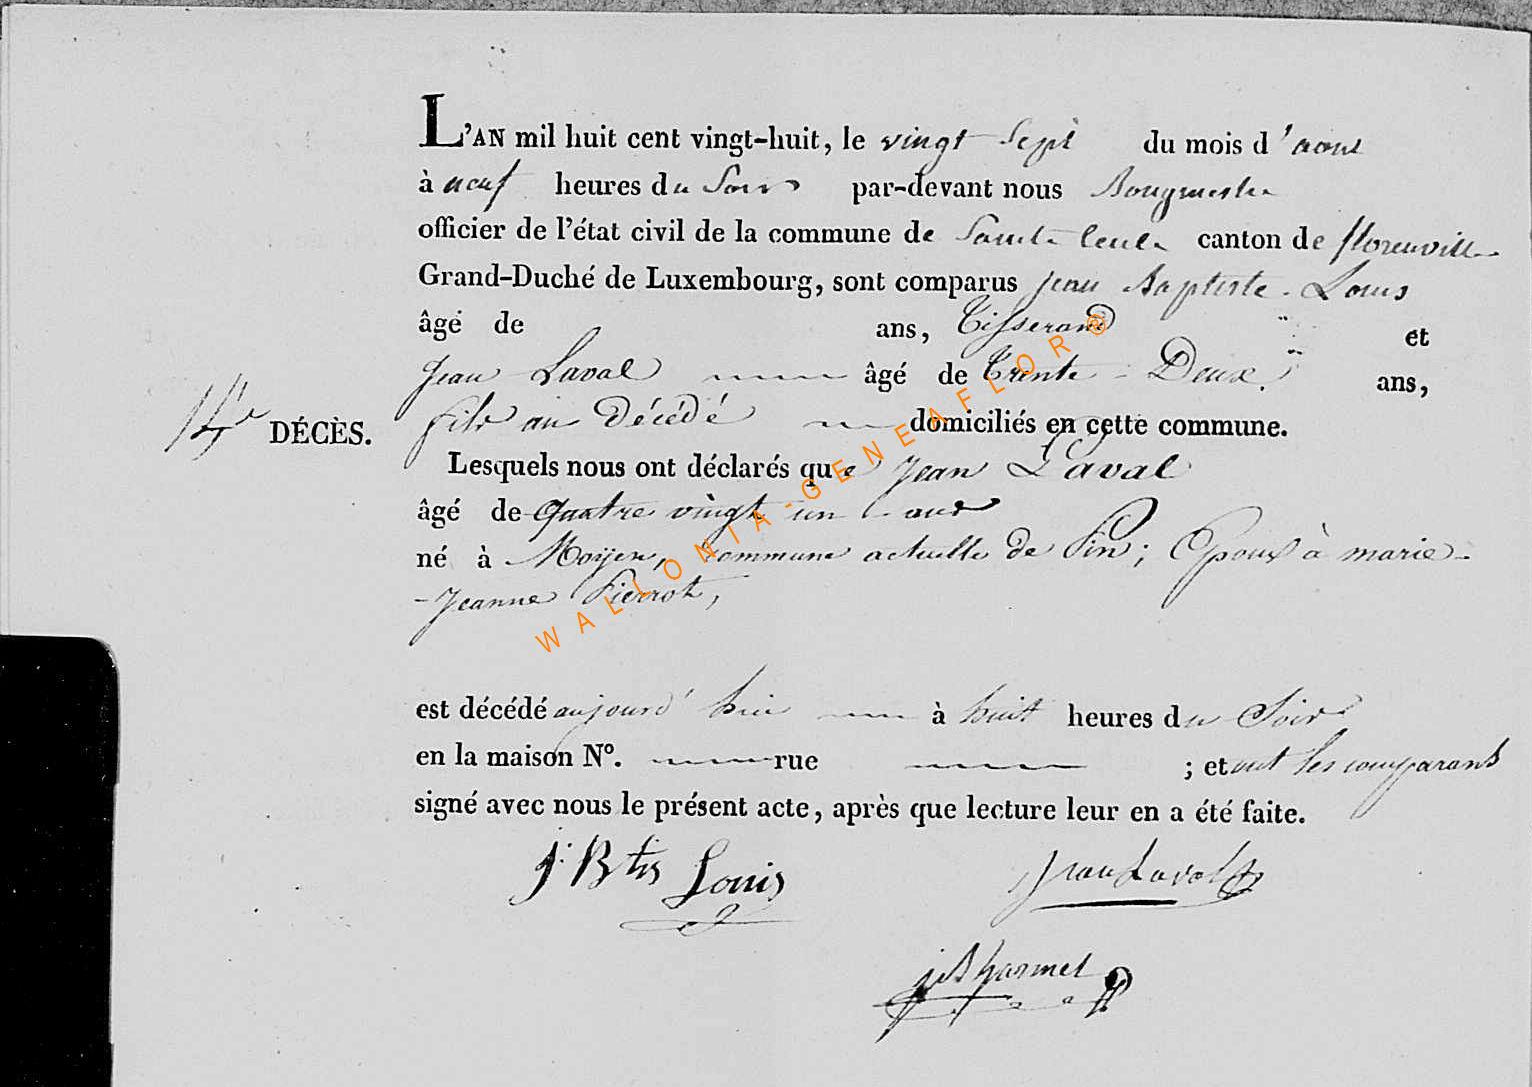 L'AN mil huit cent vingt-huit, le vingt sept du mois d'aout
à neuf heures du Soir par-devant nous Bourgmestre
officier de l'état civil de la commune de Sainte Cecile canton de florenville
Grand-Duché de Luxembourg, sont comparus jean Baptiste Louis
âgé de ans, Tisserand et
Jean Laval âgé de Trente-Deux ans,
14e DÉCÈS. fils au Décédé domiciliés en cette commune.
Lesquels nous ont déclarés que Jean Laval
âgé de quatre vingt un ans
né à Moyen, commune actuelle de Pin; Epoux à marie-
-Jeanne Pierrot,
est décédé aujourd'hui à huit heures du Soir
en la maison N°. rue ; et ont les comparans
signé avec nous le présent acte, après que lecture leur en a été faite.
j. Btis Louis Jean Laval
WALLONIA-GENEAFLOR®